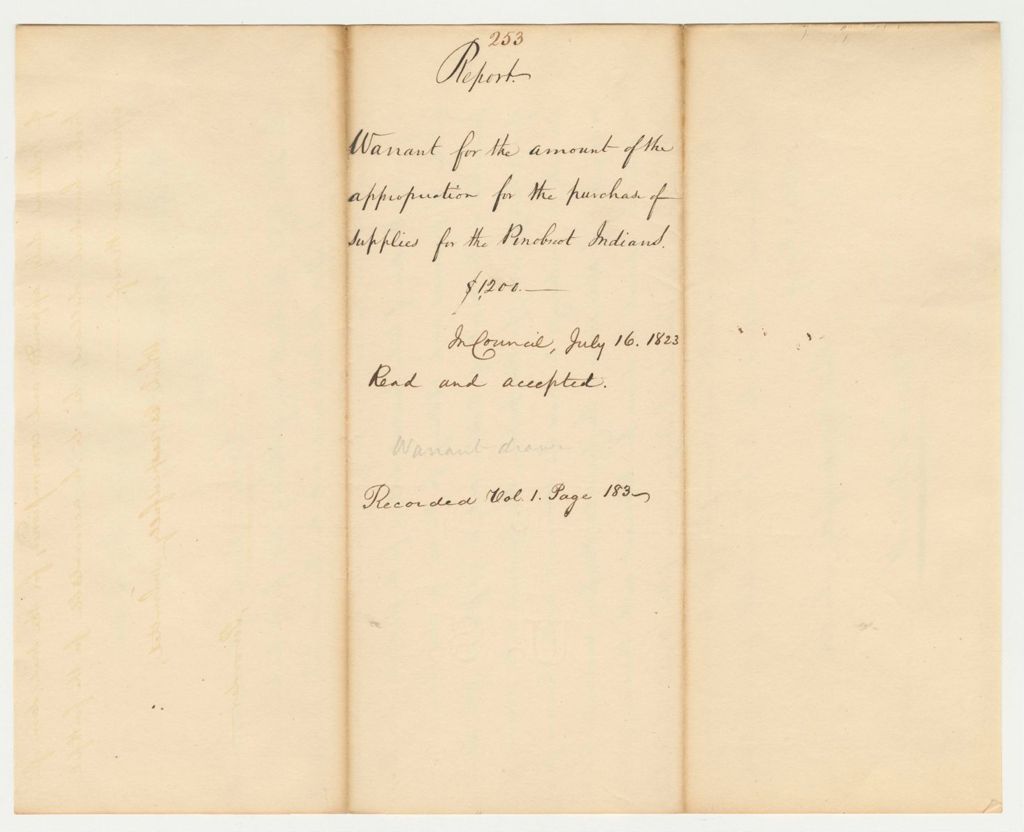 253
Report.
Warrant for the amount of the
appropriation for the purchase of
supplies for the Penobscot Indians.
$1200.—
In Council, July 16. 1823
Read and accepted.
Warrant drawn
Recorded Vol. 1. Page 183